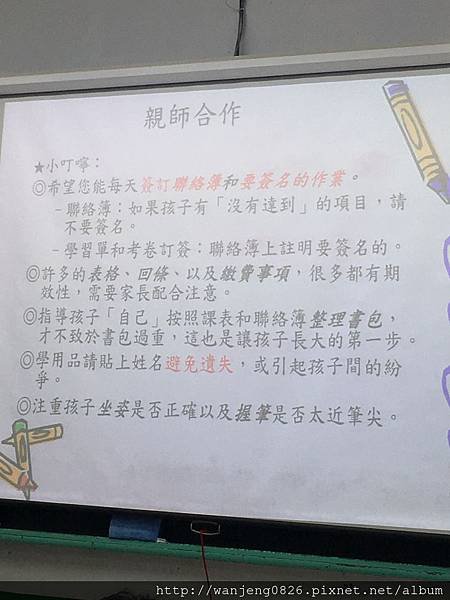 親師合作
★小叮嚀：
◎希望您能每天簽訂聯絡簿和要簽名的作業。
－聯絡簿：如果孩子有「沒有達到」的項目，請
不要簽名。
－學習單和考卷訂簽：聯絡簿上註明要簽名的。
◎許多的表格、回條、以及繳費事項，很多都有期
效性，需要家長配合注意。
◎指導孩子「自己」按照課表和聯絡簿整理書包，
才不致於書包過重，這也是讓孩子長大的第一步。
◎學用品請貼上姓名避免遺失，或引起孩子間的紛
爭。
◎注重孩子坐姿是否正確以及握筆是否太近筆尖。
http://wanjeng0826.pixnet.net/album